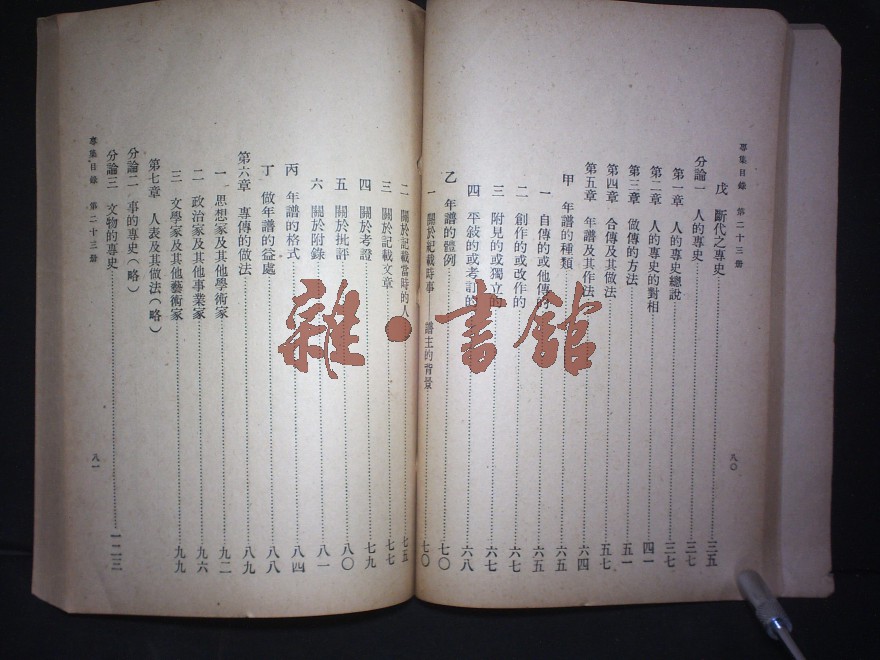 專集目錄 第二十三册
八〇
戊 斷代之專史……三五
分論一 人的專史……三七
第一章 人的專史總說……三七
第二章 人的專史的對相……四一
第三章 做傳的方法……五一
第四章 合傳及其做法……五七
第五章 年譜及其作法……六四
甲 年譜的種類……六五
一 自傳的或他傳的……六五
二 創作的或改作的……六七
三 附見的或獨立的……六七
四 平敍的或考訂的……六八
乙 年譜的體例……七〇
一 關於紀載時事——譜主的背景……七〇
二 關於記載當時的人……七五
三 關於記載文章……七七
四 關於考證……七九
五 關於批評……八〇
六 關於附錄……八一
丙 年譜的格式……八四
丁 做年譜的益處……八八
第六章 專傳的做法……八九
一 思想家及其他學術家……九二
二 政治家及其他事業家……九六
三 文學家及其他藝術家……九九
第七章 人表及其做法(略)
分論二 事的專史(略)
分論三 文物的專史……一二三
專集目錄 第二十三册
八一
雜·書館